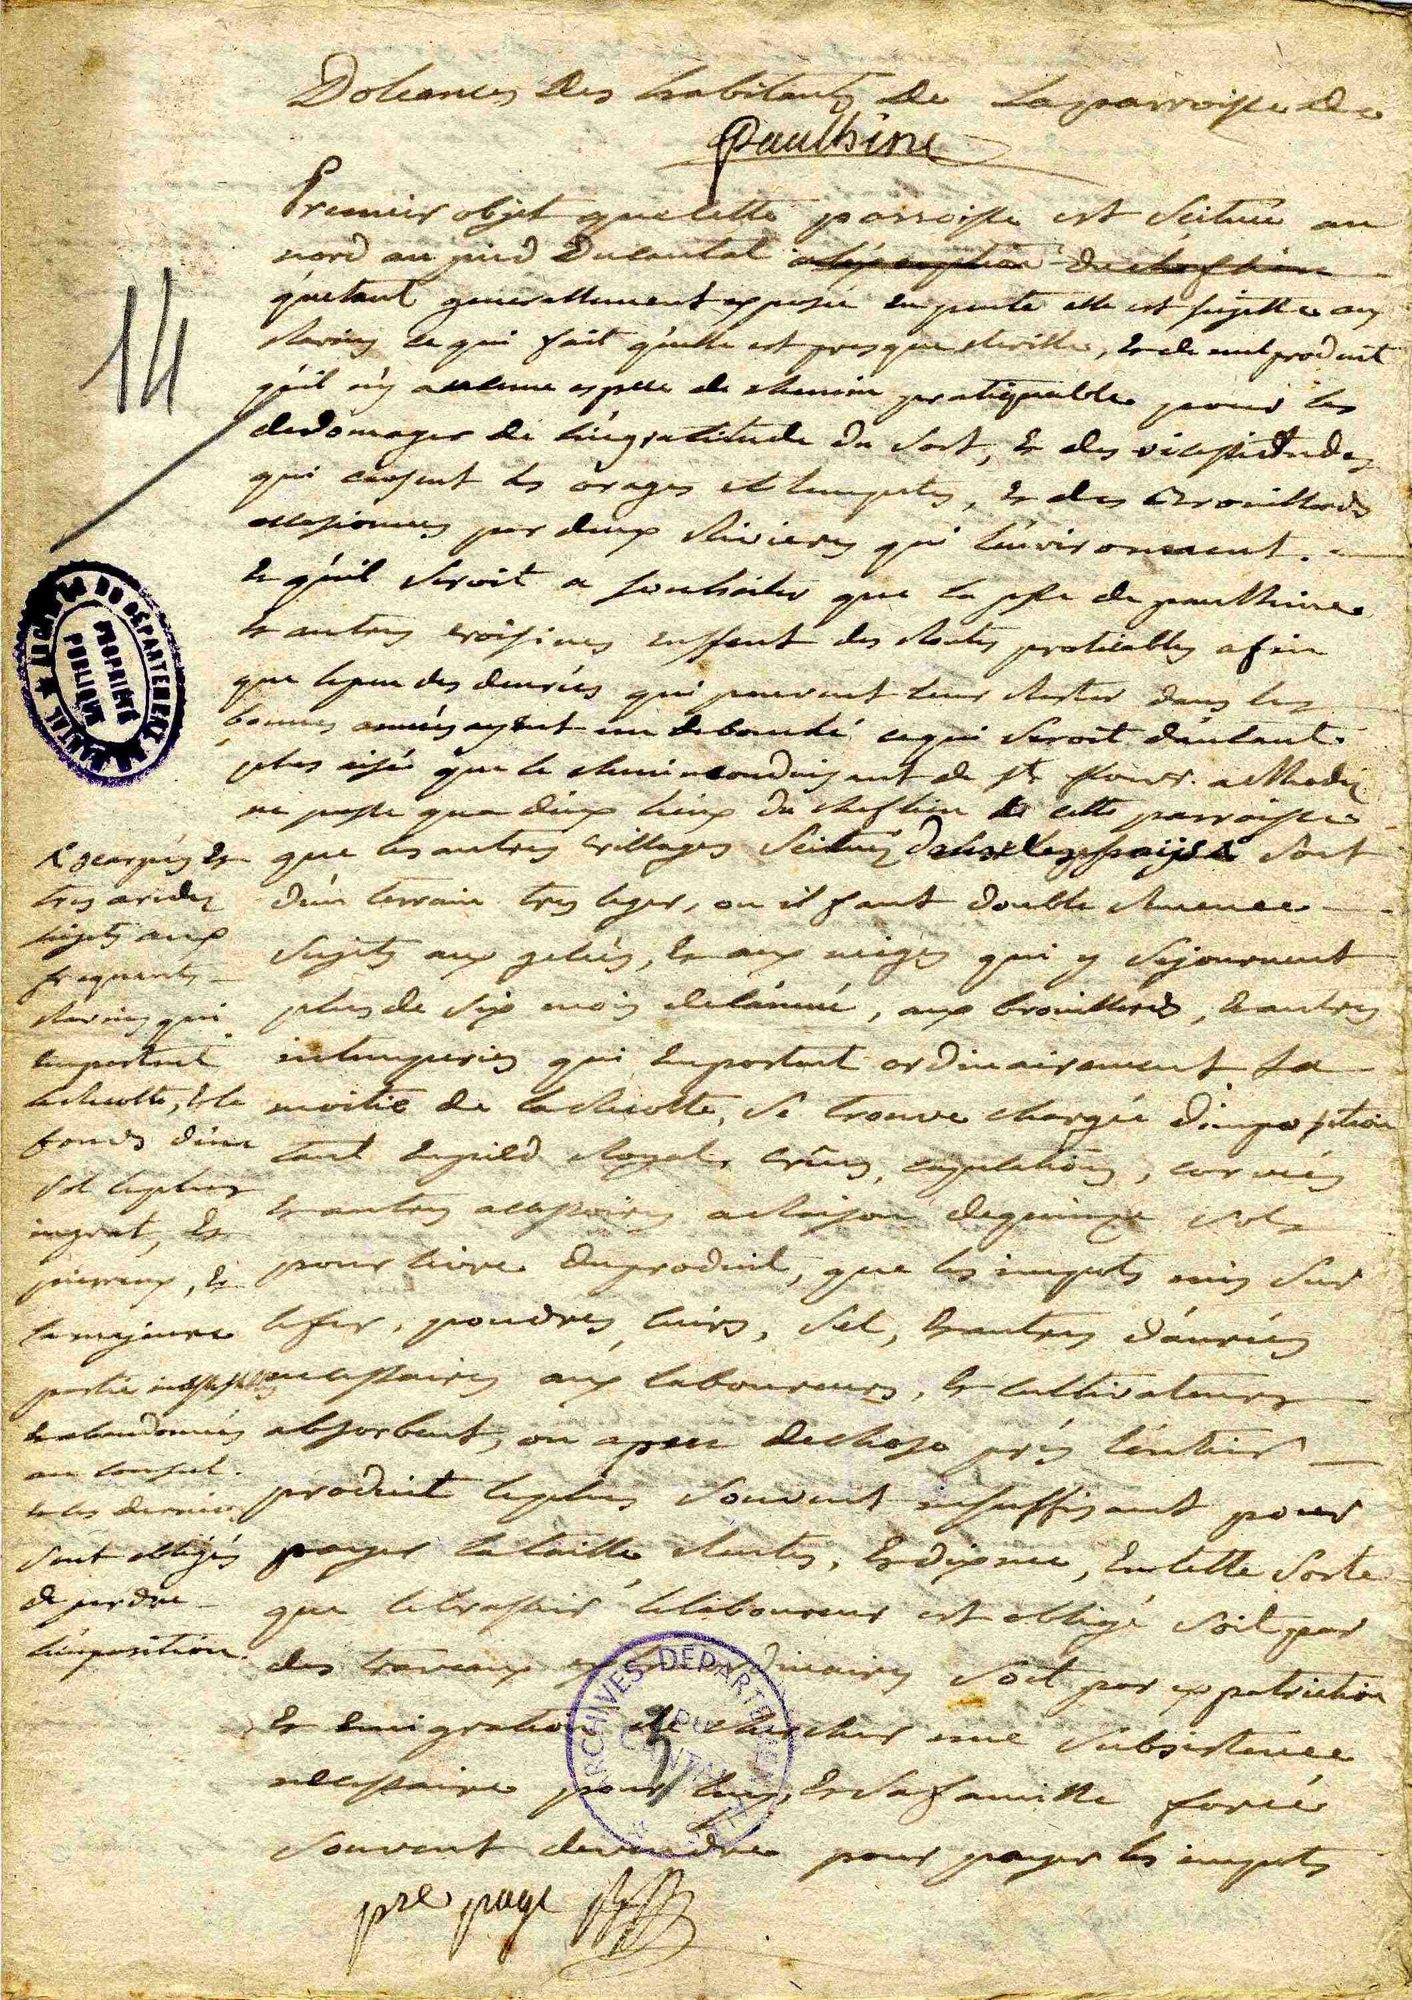 Doleances des habitants de la parroisse de
paulhine
Premier objet que cette parroisse est scituée au
nord au pied du cantal
qu'etant generallement exposée en pente elle est sujette aux
Ravins ce qui fait qu'elle est presque sterille, & de nul produit
qu'il n'y a aucune espece de chemin pratiquable pour les
dedomager de l'ingratitude du sort, & des vicissitudes
qui causent les orages et tempetes, & des Brouillards
occasionnes par deux Rivieres qui l'environnent.
& qu'il seroit a souhaiter que la psse de paulhine
& autres voisines eussent des Routes praticables afin
que le peu des denrées qui peuvent leur Rester dans les
bonnes années ayent un debouché ce qui seroit d'autant
plus aisé que le chemin conduisant de st flour a
ne passe qua deux lieux du chef lieu de cette parroisse
que les autres villages scitués dans le sont
d'un terrain tres leger, ou il faut double semence
sujets aux gelées, & aux neiges qui y sejournent
plus de six mois de l'année, aux brouillards, & autres
intemperies qui emportent ordinairement la
moitié de la Recolte, se trouve chargée d'imposition
tant en pied Royal, crûes, capitations, corvées
& autres accessoires a Raison de quinze sols
pour livre du produit, que les impots mis sur
le fer, poudres, cuirs, sel, & autres danrées
necessaires aux laboureurs, & cultivateurs
absorbent, ou a peu de chose prés l'entier
produit le plus souvent insuffisant pour
payer la taille, Rentes, & dixme, En cette sorte
que le brassier le laboureur est obligé soit par
des travaux extraordinaires soit par expatriation
& emigration de chercher une subsistence
necessaire pour luy, & sa famille forcé
souvent de vendre pour payer les impots
pre page
Escarpés &
tres arides
sujets aux
frequents
Ravins qui
emportent
la Recolte, & le
fonds d'un
sol le plus
ingrat, &
pierreux, &
la majeure
partie
& abandonnés
au consul.
& les derniers
sont obligés
de perdre
l'imposition.
14
3
ARCHIVES DU DÉPARTEMENT DU CANTAL
PROPRIÉTÉ
PUBLIQUE
ARCHIVES DEPARTEMENTALES
DU
CANTAL